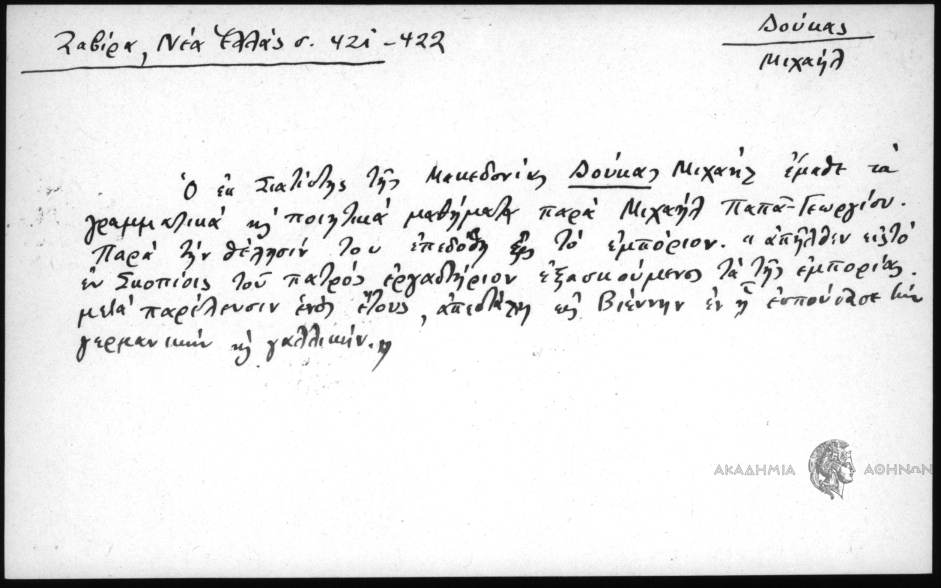 Ζαβίρα, Νέα Ἑλλάς σ. 421-422
Δούκας
Μιχαήλ
Ὁ ἐκ Σιατίστης τῆς Μακεδονίας Δούκας Μιχαήλ ἔμαθε τὰ
γραμματικά κỳ ποιητικά μαθήματα παρὰ Μιχαήλ Παπᾶ-Γεωργίου.
Παρὰ τὴν θέλησίν του ἐπεδόθη εἰς τὸ ἐμπόριον. "ἀπῆλθεν εἰς τό
ἐν Σκοπίοις τοῦ πατρός ἐργαστήριον ἐξασκούμενος τὰ τῆς ἐμπορίας.
μετά παρέλευσιν ἑνός ἔτους, ἀπεστάλη εἰς Βιέννην ἐν ᾗ ἐσπούδασε τήν
γερμανικήν κỳ γαλλικήν."
ΑΚΑΔΗΜΙΑ ΑΘΗΝΩΝ